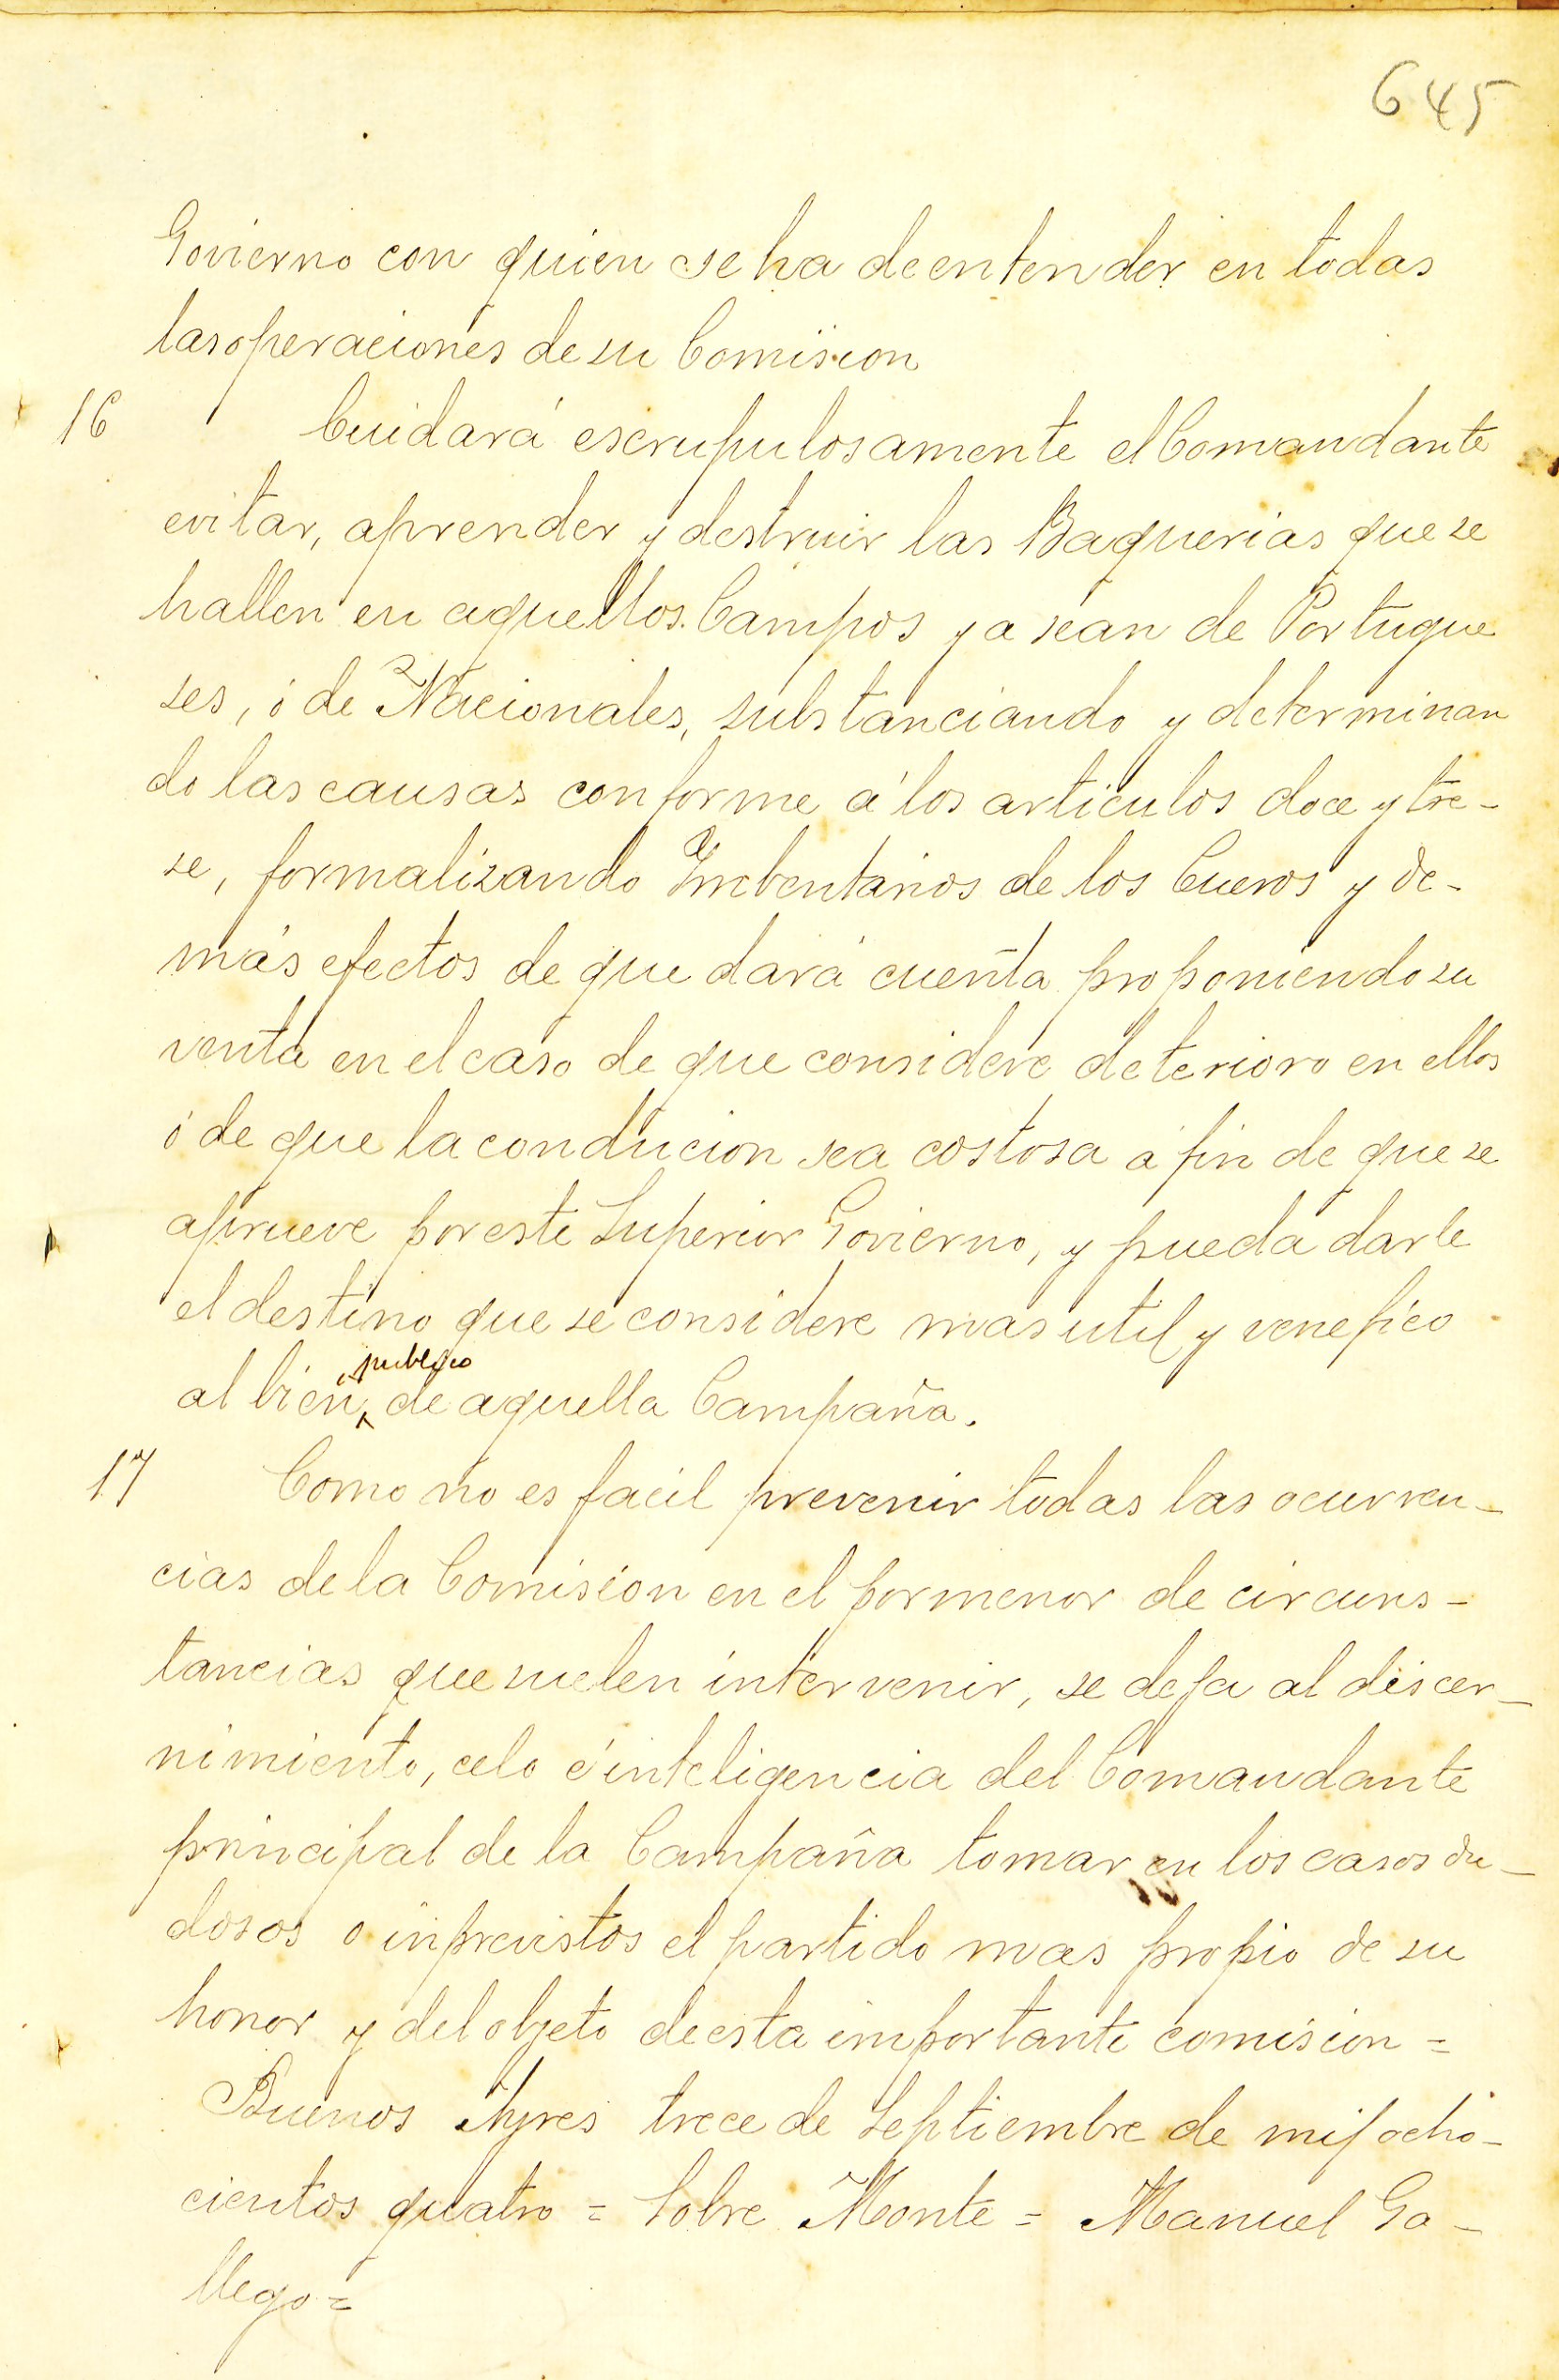 645
Govierno con quien se ha de entender en todas
las operaciones de su Comision
16 Cuidará escrupulosamente el Comandante
evitar, aprender y destruir las Baquerias que se
hallen en aquellos Campos ya sean de Portugue
ses, ó de Nacionales, substanciando y determinan
do las causas conforme á los articulos doce y tre-
se, formalizando Imbentarios de los Cueros y de-
más efectos de que dará cuenta proponiendo su
venta en el caso de que considere deterioro en ellos
ó de que la conducion sea costosa á fin de que se
aprueve por este Superior Govierno, y pueda darle
el destino que se considere mas util y venefico
al bien publico de aquella Campaña.
17 Como no es facil prevenir todas las ocurren-
cias de la Comision en el pormenor de circuns-
tancias que suelen intervenir, se deja al discer-
nimiento, celo é inteligencia del Comandante
principal de la Campaña tomar en los casos du-
dosos o inprevistos el partido mas propio de su
honor y del objeto de esta importante comision =
Buenos Ayres trece de Septiembre de mil ocho-
cientos quatro = Sobre Monte = Manuel Ga-
llego =